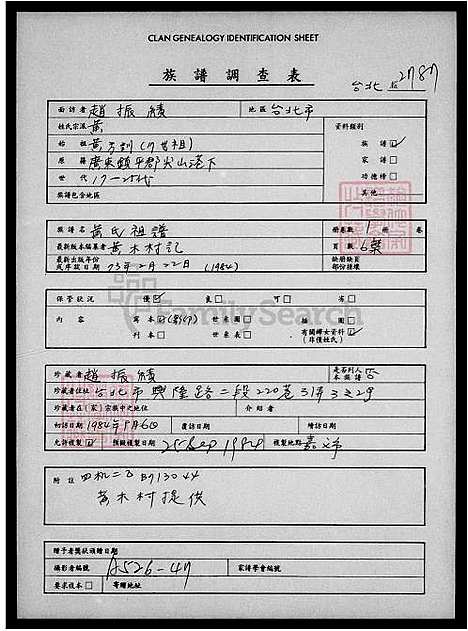 CLAN GENEALOGY IDENTIFICATION SHEET
族譜調查表
台北
面訪者 趙振績 地區 台北市
姓氏宗派 黃 資料類別
始祖 族譜
原籍 廣東鎮平郡尖山港下 家譜
世代 17-25代 功德榜
族譜包含地區 其他
族譜名 黃氏祖譜 冊卷數 1 冊 卷
最新版本編纂者 黃木村記 頁數
最新出版年份或序跋日期 73年2月22日 (1984) 缺冊缺頁部份核樓
保管狀況 優 良 可 劣
內容 寫本 世系圖 插圖
刊本 世系表 有關婦女資料 (非僅姓氏)
FamilySearch
珍藏者 趙振績 是否列入本族譜 否
珍藏者住址 台北市興隆路二段220巷31弄3之2号
珍藏者在(家)宗族中之地位 介紹者
初訪日期 1984年 覆訪日期 續訪日期
允許複製 預擬複製日期 25 Sep 1984 複製地點 嘉义市
附註
黃木村提供
贈予者獎狀頒贈日期
攝影者編號 A526-47 家譜學會編號
要求復本 寄贈地址